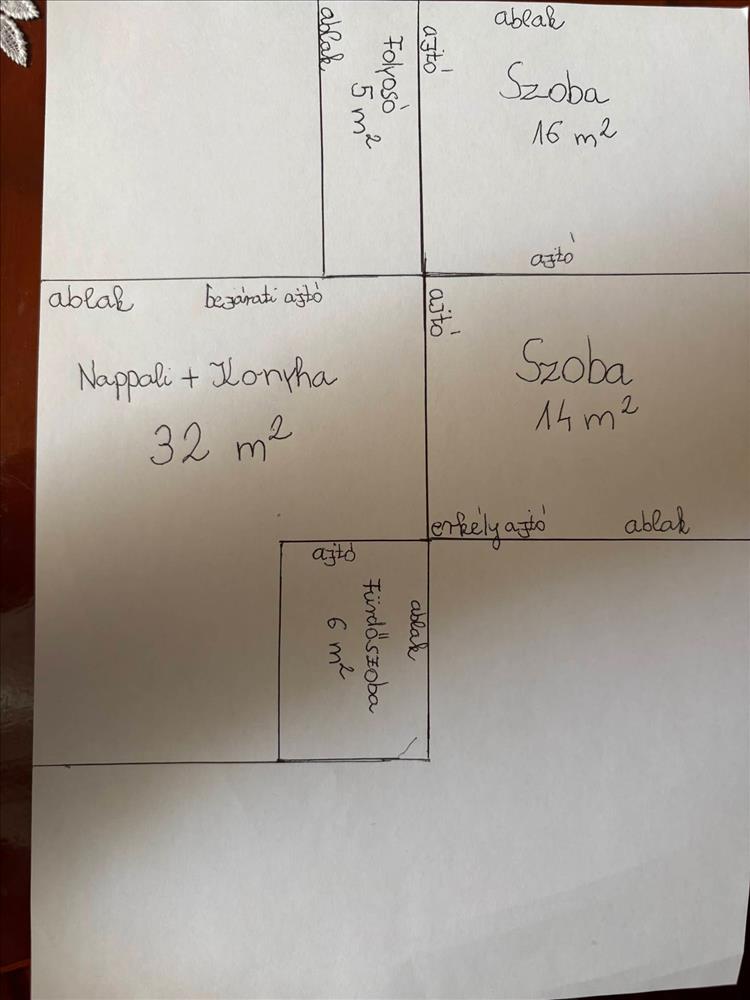 ablak
Folyosó
5 m²
ajtó
ablak
Szoba
16 m²
ajtó
ablak
bejárati ajtó
Nappali + Konyha
32 m²
ajtó
Szoba
14 m²
erkély ajtó
ablak
ajtó
ablak
Fürdőszoba
6 m²